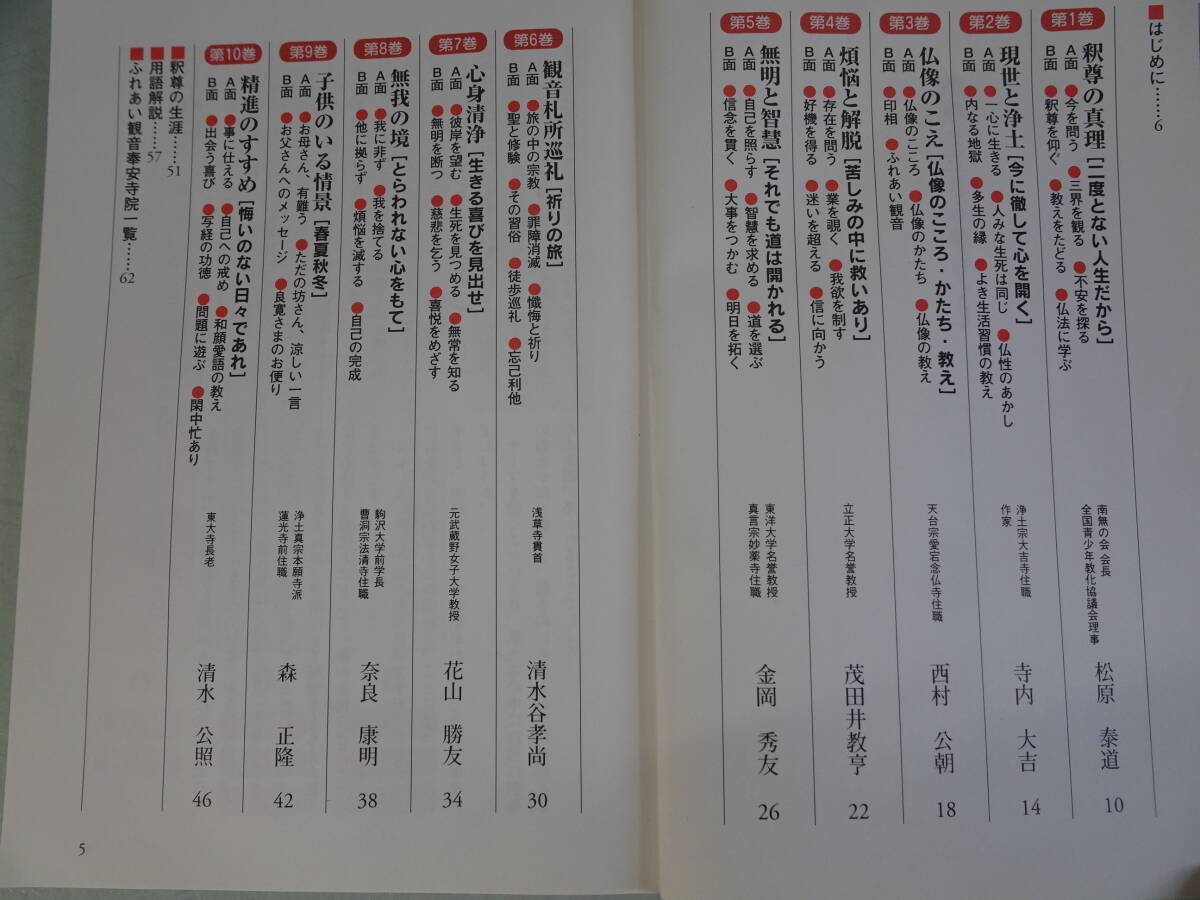 ■はじめに……6
第1巻
釈尊の真理[二度とない人生だから]
A面 ●今を問う ●三界を観る ●不安を探る
B面 ●釈尊を仰ぐ ●教えをたどる ●仏法に学ぶ
南無の会 会長
全国青少年教化協議会理事
松原 泰道 10
第2巻
現世と浄土[今に徹して心を開く]
A面 ●一心に生きる ●人みな生死は同じ ●仏性のあかし
B面 ●内なる地獄 ●多生の縁 ●よき生活習慣の教え
浄土宗大吉寺住職
作家
寺内 大吉 14
第3巻
仏像のこえ[仏像のこころ・かたち・教え]
A面 ●仏像のこころ ●仏像のかたち ●仏像の教え
B面 ●印相 ●ふれあい観音
天台宗愛宕念仏寺住職
西村 公朝 18
第4巻
煩悩と解脱[苦しみの中に救いあり]
A面 ●存在を問う ●業を覗く ●我欲を制す
B面 ●好機を得る ●迷いを超える ●信に向かう
立正大学名誉教授
茂田井教亨 22
第5巻
無明と智慧[それでも道は開かれる]
A面 ●自己を照らす ●智慧を求める ●道を選ぶ
B面 ●信念を貫く ●大事をつかむ ●明日を拓く
東洋大学名誉教授
真言宗妙薬寺住職
金岡 秀友 26
第6巻
観音札所巡礼[祈りの旅]
A面 ●旅の中の宗教 ●罪障消滅 ●懺悔と祈り
B面 ●聖と修験 ●その習俗 ●徒歩巡礼 ●忘己利他
浅草寺貫首
清水谷孝尚 30
第7巻
心身清浄[生きる喜びを見出せ]
A面 ●彼岸を望む ●生死を見つめる ●無常を知る
B面 ●無明を断つ ●慈悲を乞う ●喜悦をめざす
元武蔵野女子大学教授
花山 勝友 34
第8巻
無我の境[とらわれない心をもて]
A面 ●我に非ず ●我を捨てる
B面 ●他に拠らず ●煩悩を滅する ●自己の完成
駒沢大学前学長
曹洞宗法清寺住職
奈良 康明 38
第9巻
子供のいる情景[春夏秋冬]
A面 ●お母さん、有難う ●ただの坊さん、涼しい一言
B面 ●お父さんへのメッセージ ●良寛さまのお便り
浄土真宗本願寺派
蓮光寺前住職
森 正隆 42
第10巻
精進のすすめ[悔いのない日々であれ]
A面 ●事に仕える ●自己への戒め ●和顔愛語の教え
B面 ●出会う喜び ●写経の功徳 ●問題に遊ぶ ●閑中忙あり
東大寺長老
清水 公照 46
■釈尊の生涯……51
■用語解説……57
■ふれあい観音奉安寺院一覧……62
5